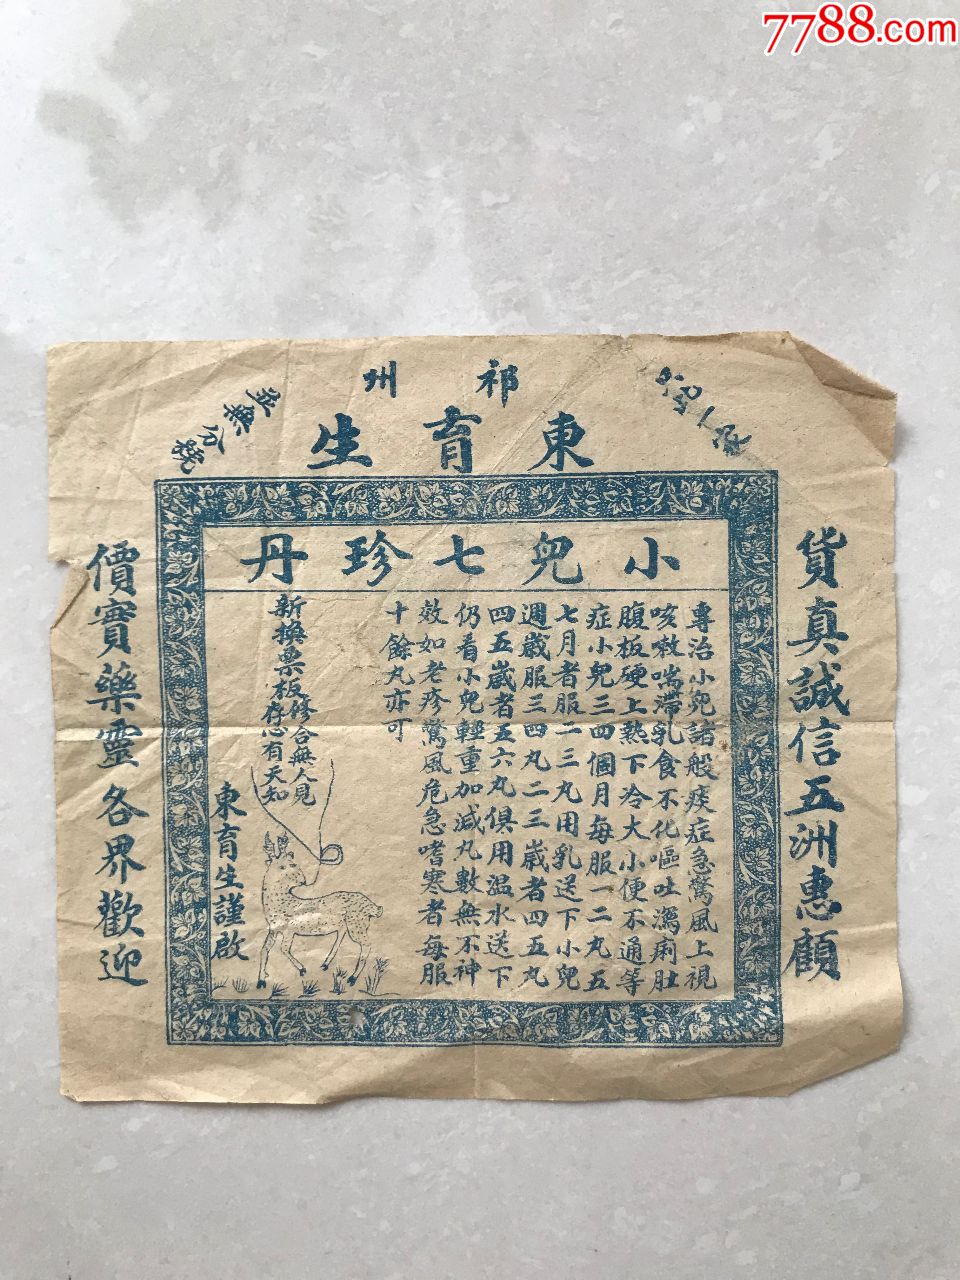 7788.com
祁州
並無分號
東育生
貨真誠信五洲惠顧
小兒七珍丹
專治小兒諸般痰症急驚風上視
咳嗽喘滯乳食不化嘔吐瀉痢肚
腹板硬上熱下冷大小便不通等
症小兒三四個月每服一二丸五
七月者服二三丸用乳送下小兒
週歲服三四丸二三歲者四五丸
四五歲者五六丸俱用溫水送下
仍看小兒輕重加減丸數無不神
效如老疹驚風危急嗜寒者每服
十餘丸亦可
新換票板
修合無人見
存心有天知
東育生謹啟
價實藥靈各界歡迎